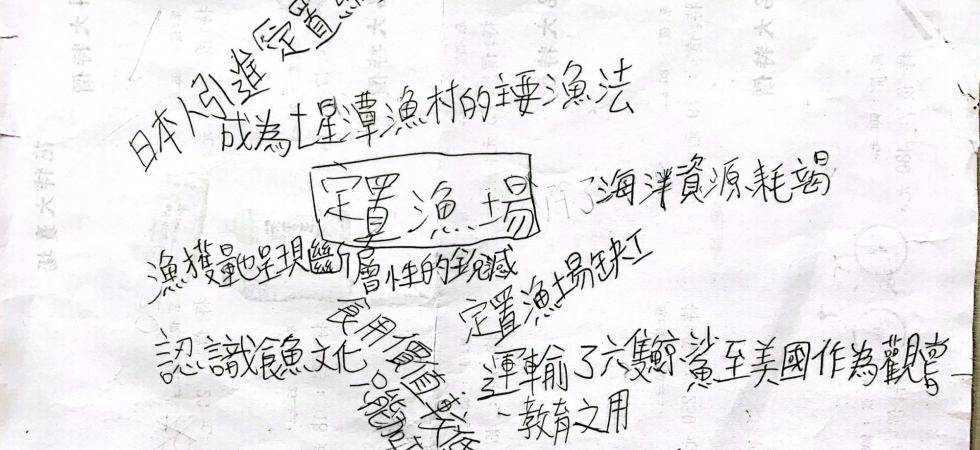 日本人引進定置
成為七星潭漁村的主要漁法
定置漁場
除了海洋資源耗竭
漁獲量也呈現斷層性的銳減
定置漁場缺工
食用價值較低
認識食魚文化
運輸了六隻鯨鯊至美國作為觀賞
教育之用